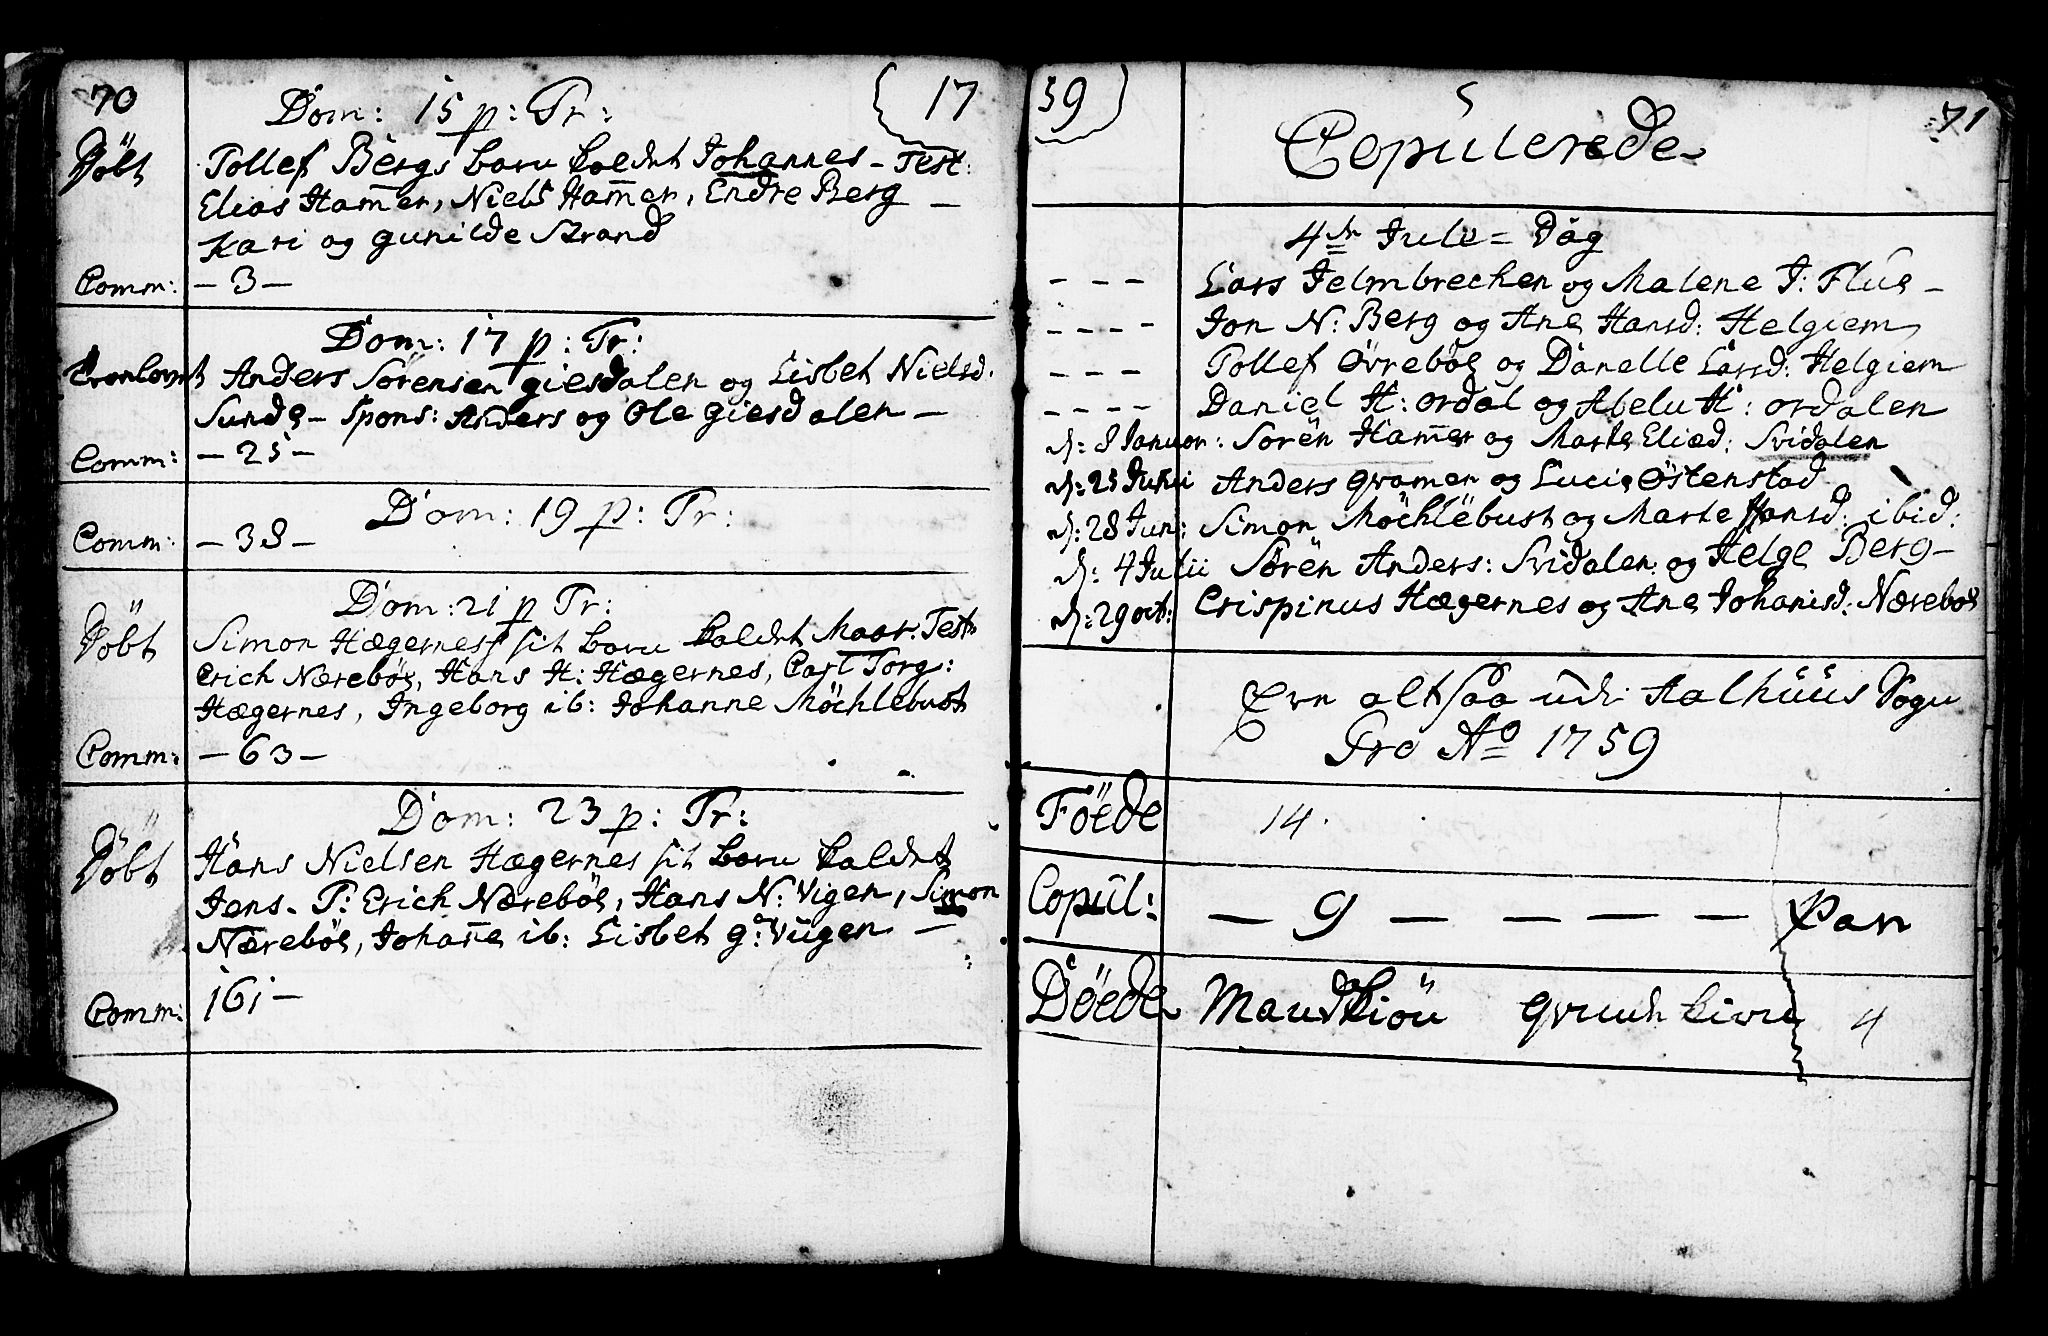 70
Dom: 15 p: Tr:
(17
Döbt
Tollef Bergs barn kaldet Johannes - Test:
Elias Ham̄er, Niels Ham̄er, Endre Berg -
Kari og Gunilde Strand
Comm: - 3 -
Dom: 17 p: Tr:
Tronlovet Anders Sörensen Giesdalen og Lisbet Nielsd.
Sunde - Spons: Anders og Ole Giesdalen -
Comm: - 25 -
Dom: 19 p: Tr:
Comm: - 38 -
Dom: 21 p Tr:
Döbt
Simon Hægernes sit barn kaldet Test
Erich Næreböe, Hans H: Hægernes, Carl Torg:
Hægernes, Ingeborg ib: Johanne Möchlebust
Comm: - 63 -
Dom: 23 p: Tr:
Döbt
Hans Nielsen Hægernes sit barn kaldet
Jens - T: Erich Næreböe, Hans N: Vigen, Simon
Næreböe, Johan̄e ib: Lisbet G: Viigen -
Comm: 161 -
59)
71
Copulerede
4de Jule = Dag
- - - Lars Jelmbrechen og Malene J: Flue -
- - - - Jon N: Berg og Ane Hansd: Helgiem
- - - Tollef Övreböe og Danelle Larsd: Helgiem
- - - - Daniel H: Ordal og Abelu H: Ordalen
d: 8 Januar: Sörën Ham̄er og Marte Eliæd: Svidalen
d: 25 Junii Anders Gramer og Lucie Östenstad
d: 28 Jun: Simon Möchlëbust og Marte Hansd: ibid:
d: 4 Julii Sören Anders: Svidalen og Helge Berg -
d: 29 oct: Crispinus Hægernes og Ane Johanisd: Næreböe
Ere altsaa udi Aalhuus Sogn
Pro Ao 1759
Föede 14.
Copul: - 9 - - - - Par
Döede Mandkiön Qvindekiön 4